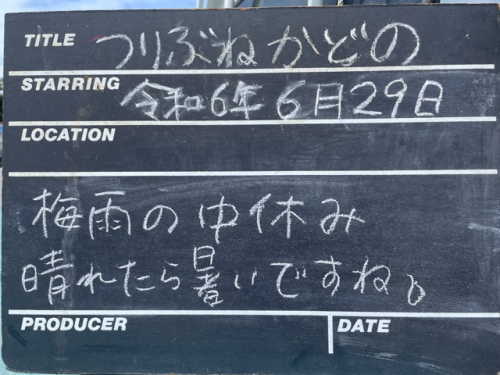 TITLE つりぶねかどの
STARRING 令和6年6月29日
LOCATION
梅雨の中休み
晴れたら暑いですね。
PRODUCER DATE